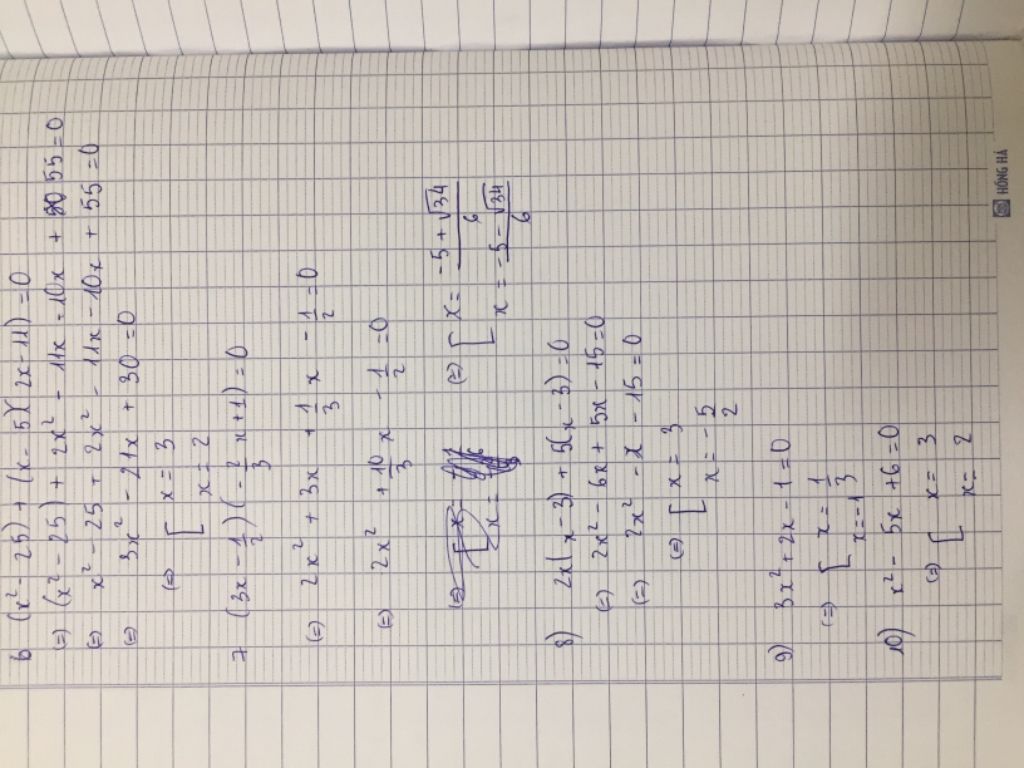 6 (x² - 25) + (x - 5)(2x - 11) = 0
(=) (x² - 25) + 2x² - 11x - 10x + 55 = 0
(=) x² - 25 + 2x² - 11x - 10x + 55 = 0
(=) 3x² - 21x + 30 = 0
(=) [ x = 3
x = 2
7 (3x - 1/2)(-2/3 x + 1) = 0
(=) 2x² + 3x + 1/3 x - 1/2 = 0
(=) 2x² + 10/3 x - 1/2 = 0
(=) [ x = (-5 + √34)/6
x = (-5 - √34)/6
8) 2x(x - 3) + 5(x - 3) = 0
(=) 2x² - 6x + 5x - 15 = 0
(=) 2x² - x - 15 = 0
(=) [ x = 3
x = -5/2
9) 3x² + 2x - 1 = 0
(=) [ x = 1/3
x = -1
10) x² - 5x + 6 = 0
(=) [ x = 3
x = 2
HỒNG HÀ